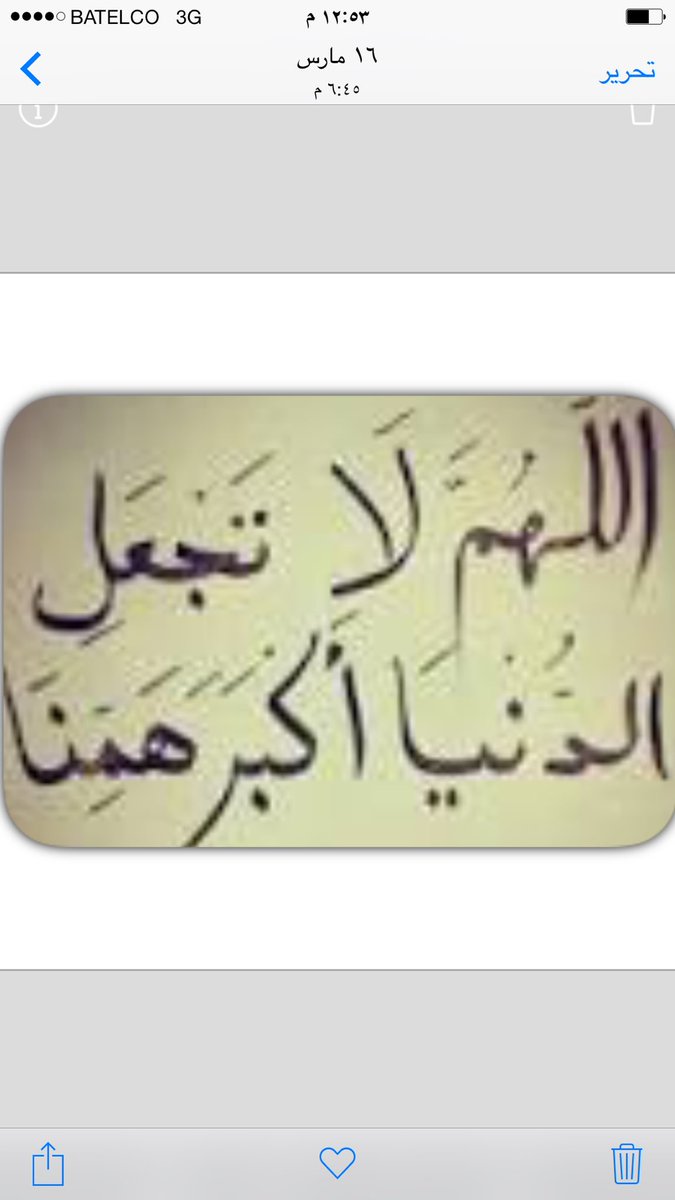 BATELCO 3G ١٢:٥٣ م
١٦ مارس
٦:٤٥ م
تحرير
اللَّهُمَّ لَا تَجْعَلِ
الدُّنْيَا أَكْبَرَ هَمِّنَا